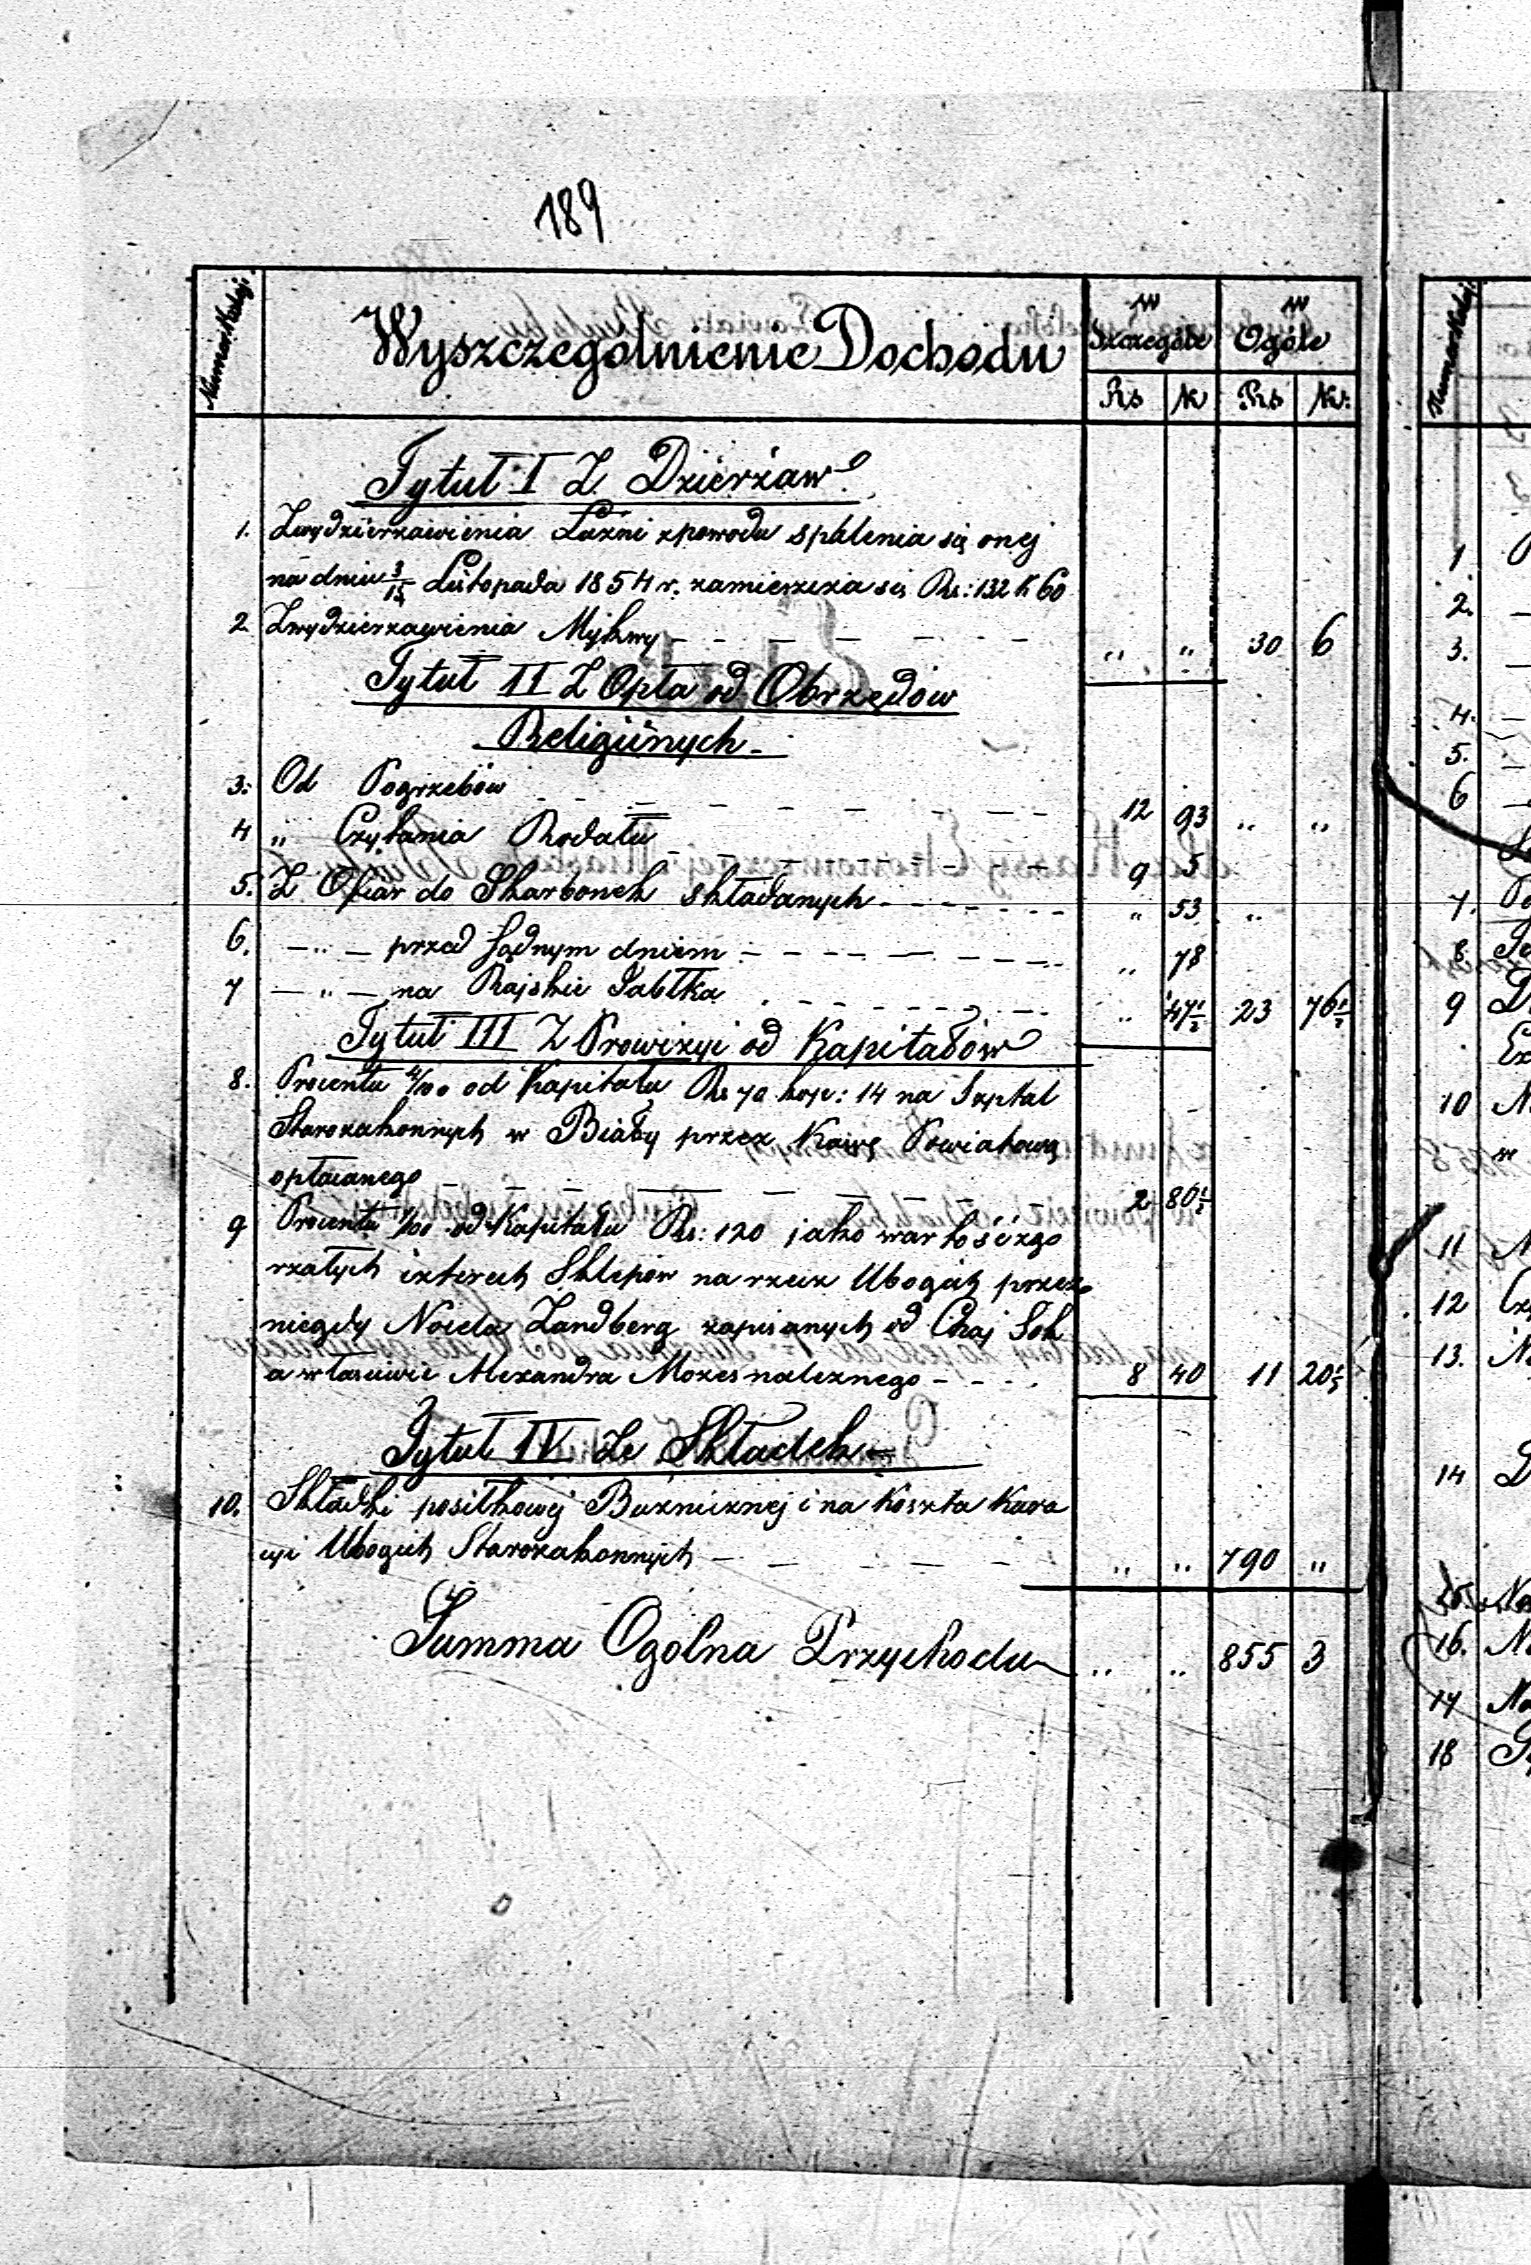 189
Numer Kolej:
Wyszczegolnienie Dochodu
w Szczególe
w Ogóle
Rs K Rs K:
Tytuł I Z Dzierżaw
1. Zwydzierzawienia Łaźni zpowodu spalenia się onej
na dniu 3/15 Listopada 1854 r. zamieszcza się Rs: 132 K 60
2 Zwydzierzawienia Mykwy - - - - - - „ „ 30 6
Tytuł II Z Opłat od Obrzędów
Religijnych -
3. Od Pogrzebów - - - - - - 12 93 „ „
4 „ Czytania Rodału - - - - - - 9 5
5. Z Ofiar do Skarbonek składanych - - - - - - „ 53 „
6. — „ — przed Sądnym dniem - - - - - - „ 78
7 — „ — na Rajskie Jabłka - - - - - - „ 47 1/2 23 76 1/2
Tytuł III Z Prowizyi od Kapitałów
8. Procentu 4/100 od Kapitału Rs 70 kop: 14 na Szpital
Starozakonnych w Biały przez Kassę Powiatową
opłacanego - - - - - - 2 80 1/2
9 Procentu /100 od Kapitału Rs: 120 jako wartość zgo
rzałych czterech Sklepów na rzecz Ubogich przez
niegdy Landberg zapisanych od Chaj Sok
a właściwie Alexandra Mozes naleznego - - - - 8 40 11 20 1/2
Tytuł IV Ze Składek -
10. Składki posiłkowej Bużniczney i na Koszta Kura
cyi Ubogich Starozakonnych - - - - - - „ „ 790 „
Summa Ogolna Przychodu „ „ 855 3
Numer Kolej:
1
2.
3.
4.
5.
6
7.
8.
9
10
11
12
13.
14
16.
17
18